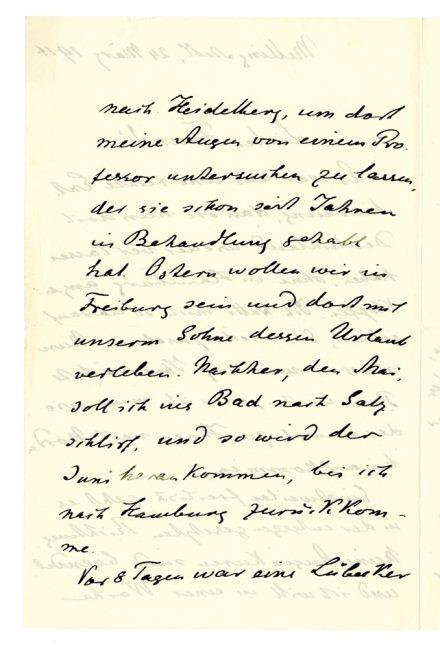 nach Heidelberg, um dort
meine Augen von einem Pro-
fessor untersuchen zu lassen,
der sie schon seit Jahren
in Behandlung gehabt
hat. Ostern wollen wir in
Freiburg sein und dort mit
unserm Sohne dessen Urlaub
verleben. Nachher, den Mai,
soll ich ins Bad nach Salz
schlirf, und so wird der
Juni heran kommen, bis ich
nach Hamburg zurück kom-
me.
Vor 8 Tagen war eine Lübecker